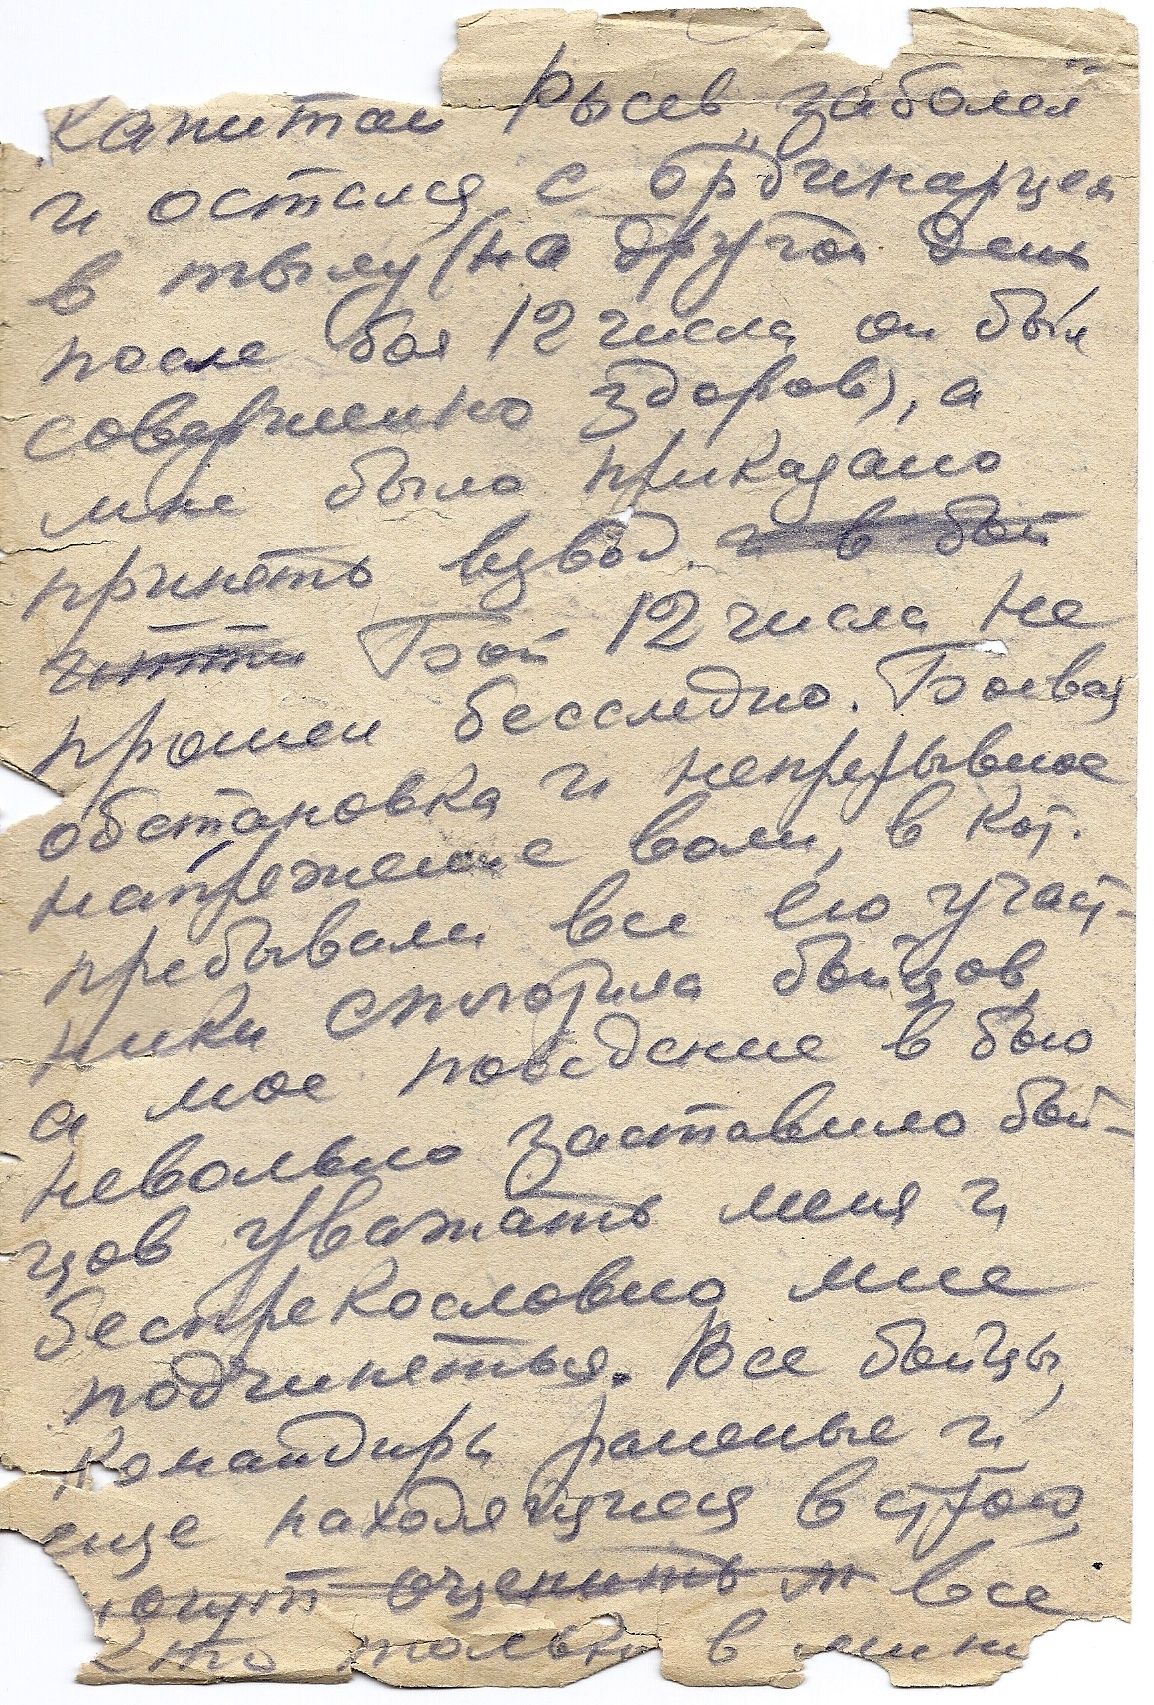 капитан Рысев „заболел"
и остался с ординарцем
в тылу (на другой день
после боя 12 числа он был
совершенно здоров), а
мне было приказано
принять взвод. и в бой
идти Бой 12 числа не
прошел бесследно. Боевая
обстановка и непрерывное
напряжение воли, в кот.
пребывали все его участ-
ники сплотила бойцов,
а мое поведение в бою
невольно заставило бой-
цов уважать меня и
беспрекословно мне
подчиняться. Все бойцы,
командиры раненые и
еще находящиеся в строю,
могут оценить м все
кто только в мин